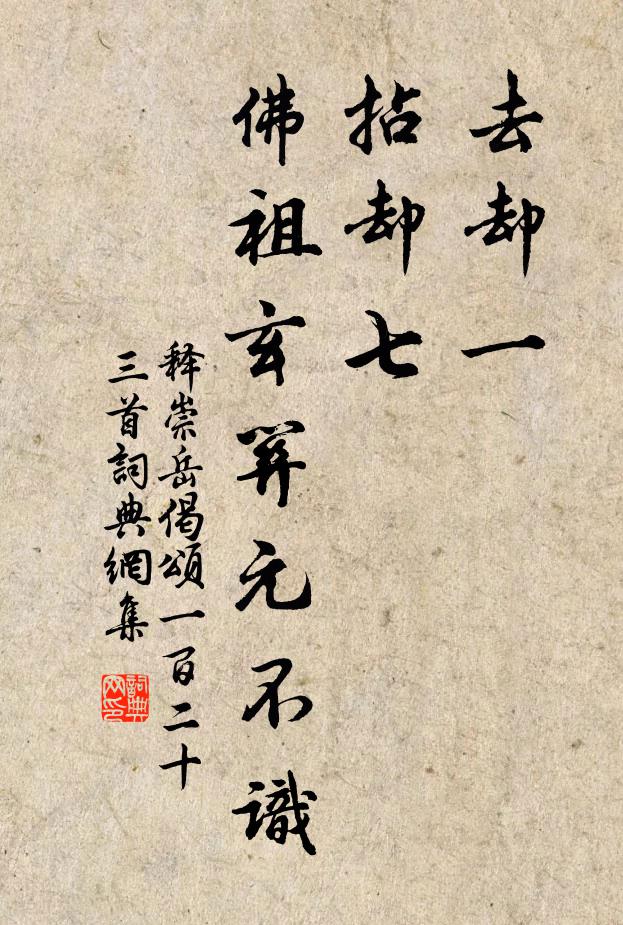 去却一
拈却七
佛祖玄关元不識
释崇岳偈頌一百二十
三首詞典網集
詞典
网印